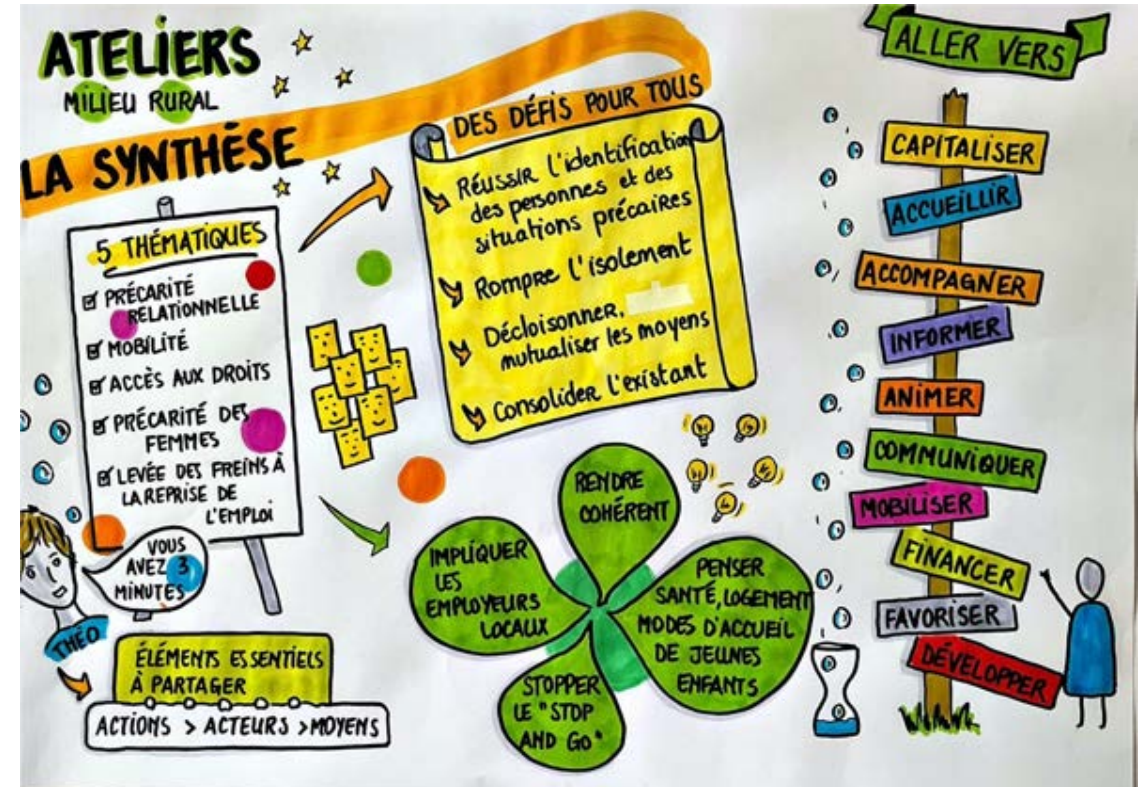 ATELIERS
MILIEU RURAL
LA SYNTHÈSE
5 THÉMATIQUES
PRÉCARITÉ
RELATIONNELLE
MOBILITÉ
ACCÈS AUX DROITS
PRÉCARITÉ DES
FEMMES
LEVÉE DES FREINS À
LA REPRISE DE
L'EMPLOI
VOUS
AVEZ 3
MINUTES
THÉO
ÉLÉMENTS ESSENTIELS
À PARTAGER
ACTIONS > ACTEURS > MOYENS
DES DÉFIS POUR TOUS
Réussir l'identification
des personnes et des
situations précaires
Rompre l'isolement
Décloisonner,
mutualiser les moyens
Consolider l'existant
RENDRE
COHÉRENT
IMPLIQUER
LES
EMPLOYEURS
LOCAUX
PENSER
SANTÉ, LOGEMENT
MODES D'ACCUEIL
DE JEUNES
ENFANTS
STOPPER
LE "STOP
AND GO"
ALLER VERS
CAPITALISER
ACCUEILLIR
ACCOMPAGNER
INFORMER
ANIMER
COMMUNIQUER
MOBILISER
FINANCER
FAVORISER
DÉVELOPPER